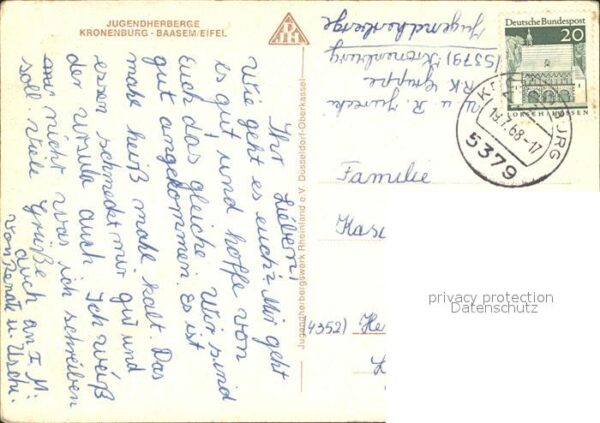 JUGENDHERBERGE
KRONENBURG - BAASEM/EIFEL
Ihr Lieben!
Wie geht es euch? Mir geht
es gut und hoffe von
Euch das gleiche. Wir sind
gut angekommen. Es ist
mahl heiß mahl kalt. Das
essen schmeckt mir gut und
der Ursula auch. Ich weiß
nicht was ich schreiben
soll. Viele Grüße
auch an I. M.
von Renate u. Uschi.
Jugendherbergswerk Rheinland e.V. Düsseldorf-Oberkassel
u. R.
RK Gruppe
(5379) Kronenburg
Jugendherberge
Deutsche Bundespost
20
LORSCH/HESSEN
KRONENBURG
18.7.68-17
5379
Familie
(4352) He
privacy protection
Datenschutz